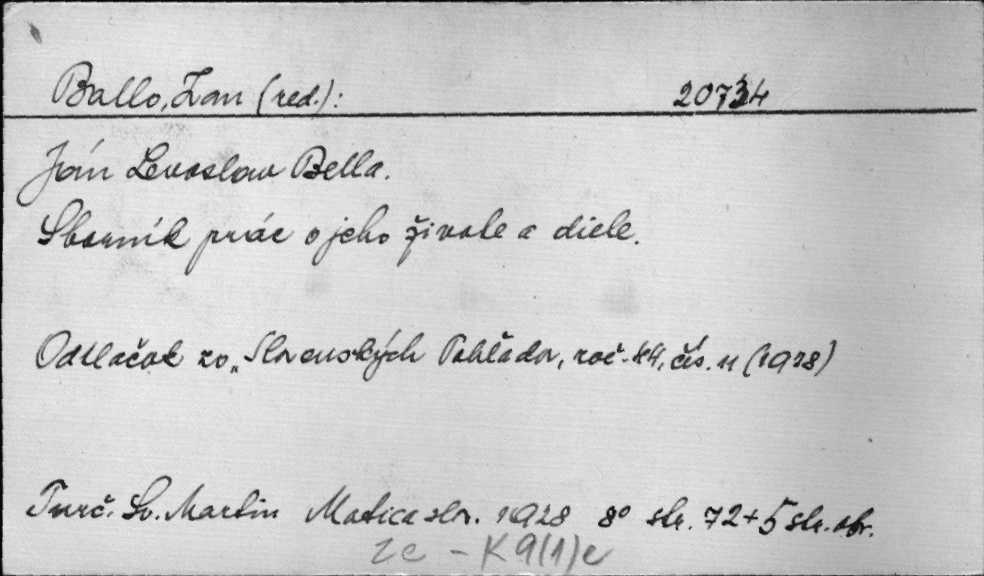 Ballo, Ian (red.): 20734
Ján Levoslav Bella.
Sborník prác o jeho živote a diele.
Odtlačok zo „Slovenských Pohľadov, roč. 44, čís. 11 (1928)
Turč. Sv. Martin Matica slov. 1928 8° str. 72+5 str. obr.
Zc - K9(1)c